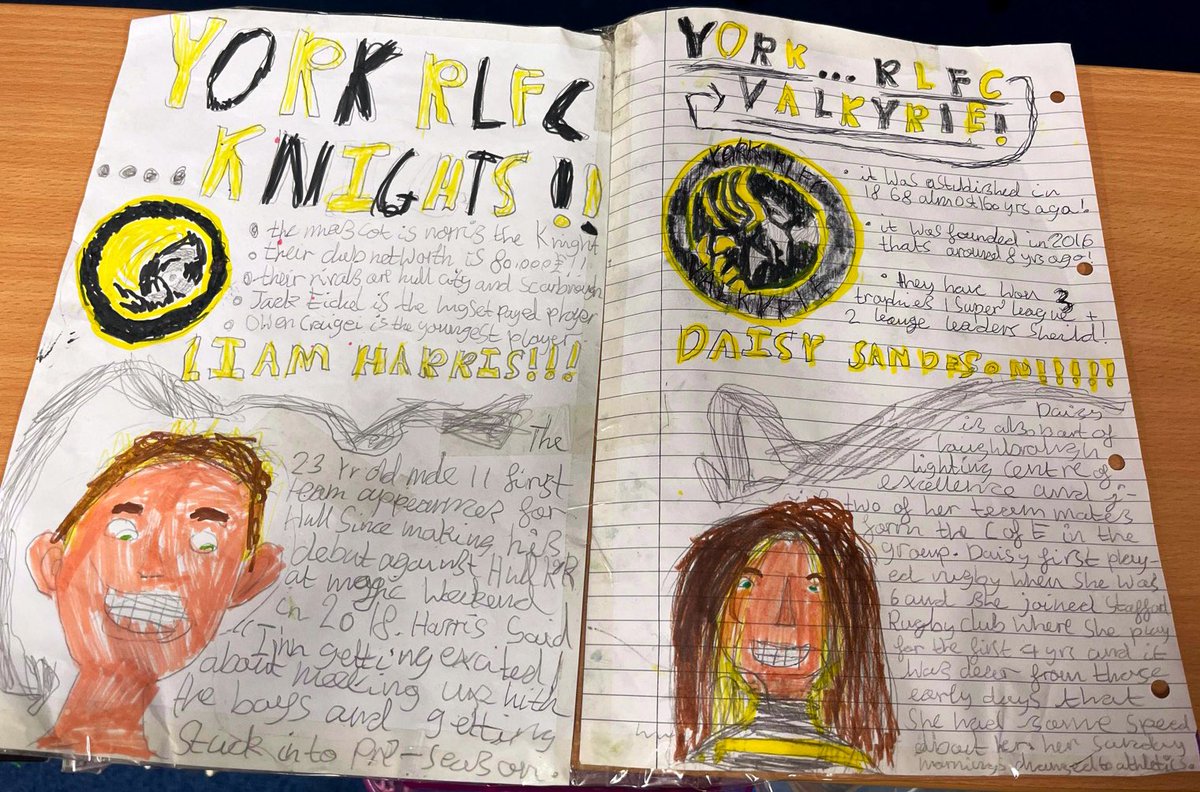 YORK RLFC
.... KNIGHTS!!
• the mascot is norris the Knight
• their club net worth is 80.000£!!
• their rivals are hull city and Scarbrough
• Jack Eickel is the highset payed player
• Owen Craigei is the youngest player
LIAM HARRIS!!!
The
23 Yr old made 11 first
team appearances for
Hull since making his
debut against Hull KR
at magic Weekend
in 2018. Harris Said
"I'm getting excited
about meeting up with
the boys and getting
Stuck into pre-season.
YORK... RLFC
VALKYRIE!
YORK RLFC
VALKYRIE
• it was astublished in
1868 almost 160 yrs ago!
• it was founded in 2016
thats around 8 yrs ago!
• they have won 3
trophies 1 super league +
2 leauge leaders Sheild!
DAISY SANDESON!!!!!!
Daisy
is also part of
loughborough
lighting centre of
excellence and
two of her team mates
form the C of E in the
group. Daisy first play-
ed rugby when she was
6 and she joined Stafford
Rugby club where she play
for the first 4 yrs and it
was clear from those
early days that
She had some speed
about her. her Sunday
mornings changed to athletics.